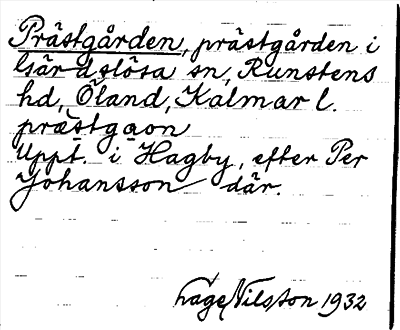 Prästgården, prästgården i
Gärdslösa sn, Runstens
hd, Öland, Kalmar l.
prästgaon
Uppt. i Hagby, efter Per
Johansson där.
Lage Nilsson 1932